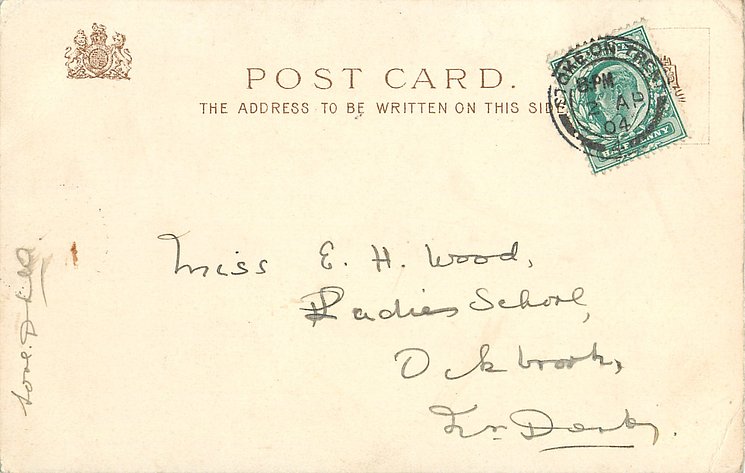 POST CARD.
THE ADDRESS TO BE WRITTEN ON THIS SIDE
STOKE-ON-TRENT
8.PM
2 AP
04
HALFPENNY
Miss E. H. Wood,
Ladies School,
Ockbrook,
Nr Derby.